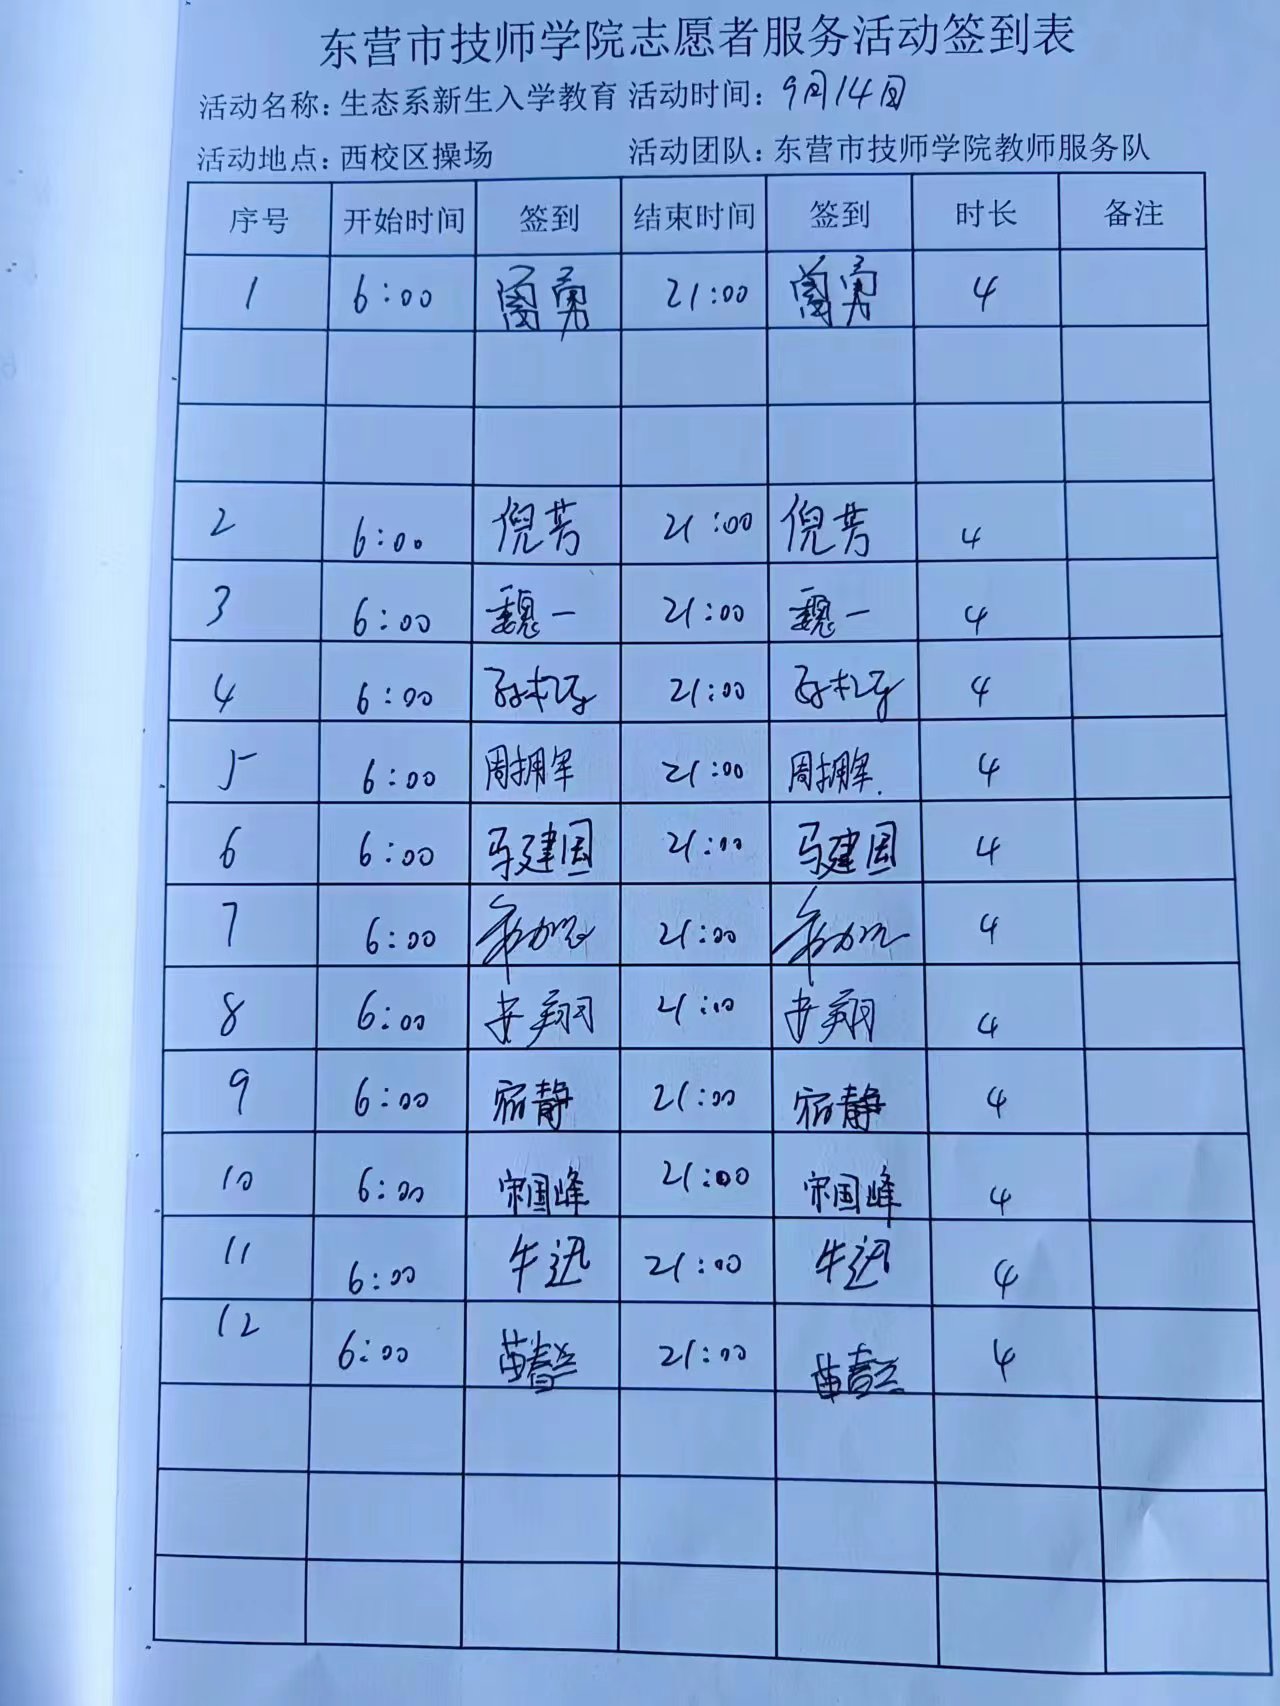 东营市技师学院志愿者服务活动签到表
活动名称:生态系新生入学教育 活动时间: 9月14日
活动地点:西校区操场 活动团队:东营市技师学院教师服务队
序号 开始时间 签到 结束时间 签到 时长 备注
1 6:00 阎勇 21:00 阎勇 4
2 6:00 倪芳 21:00 倪芳 4
3 6:00 魏一 21:00 魏一 4
4 6:00 21:00 4
5 6:00 周拥军 21:00 周拥军 4
6 6:00 马建国 21:00 马建国 4
7 6:00 21:00 4
8 6:00 安翔 21:00 安翔 4
9 6:00 宿静 21:00 宿静 4
10 6:00 宋国峰 21:00 宋国峰 4
11 6:00 牛迅 21:00 牛迅 4
12 6:00 苗春兰 21:00 苗春兰 4